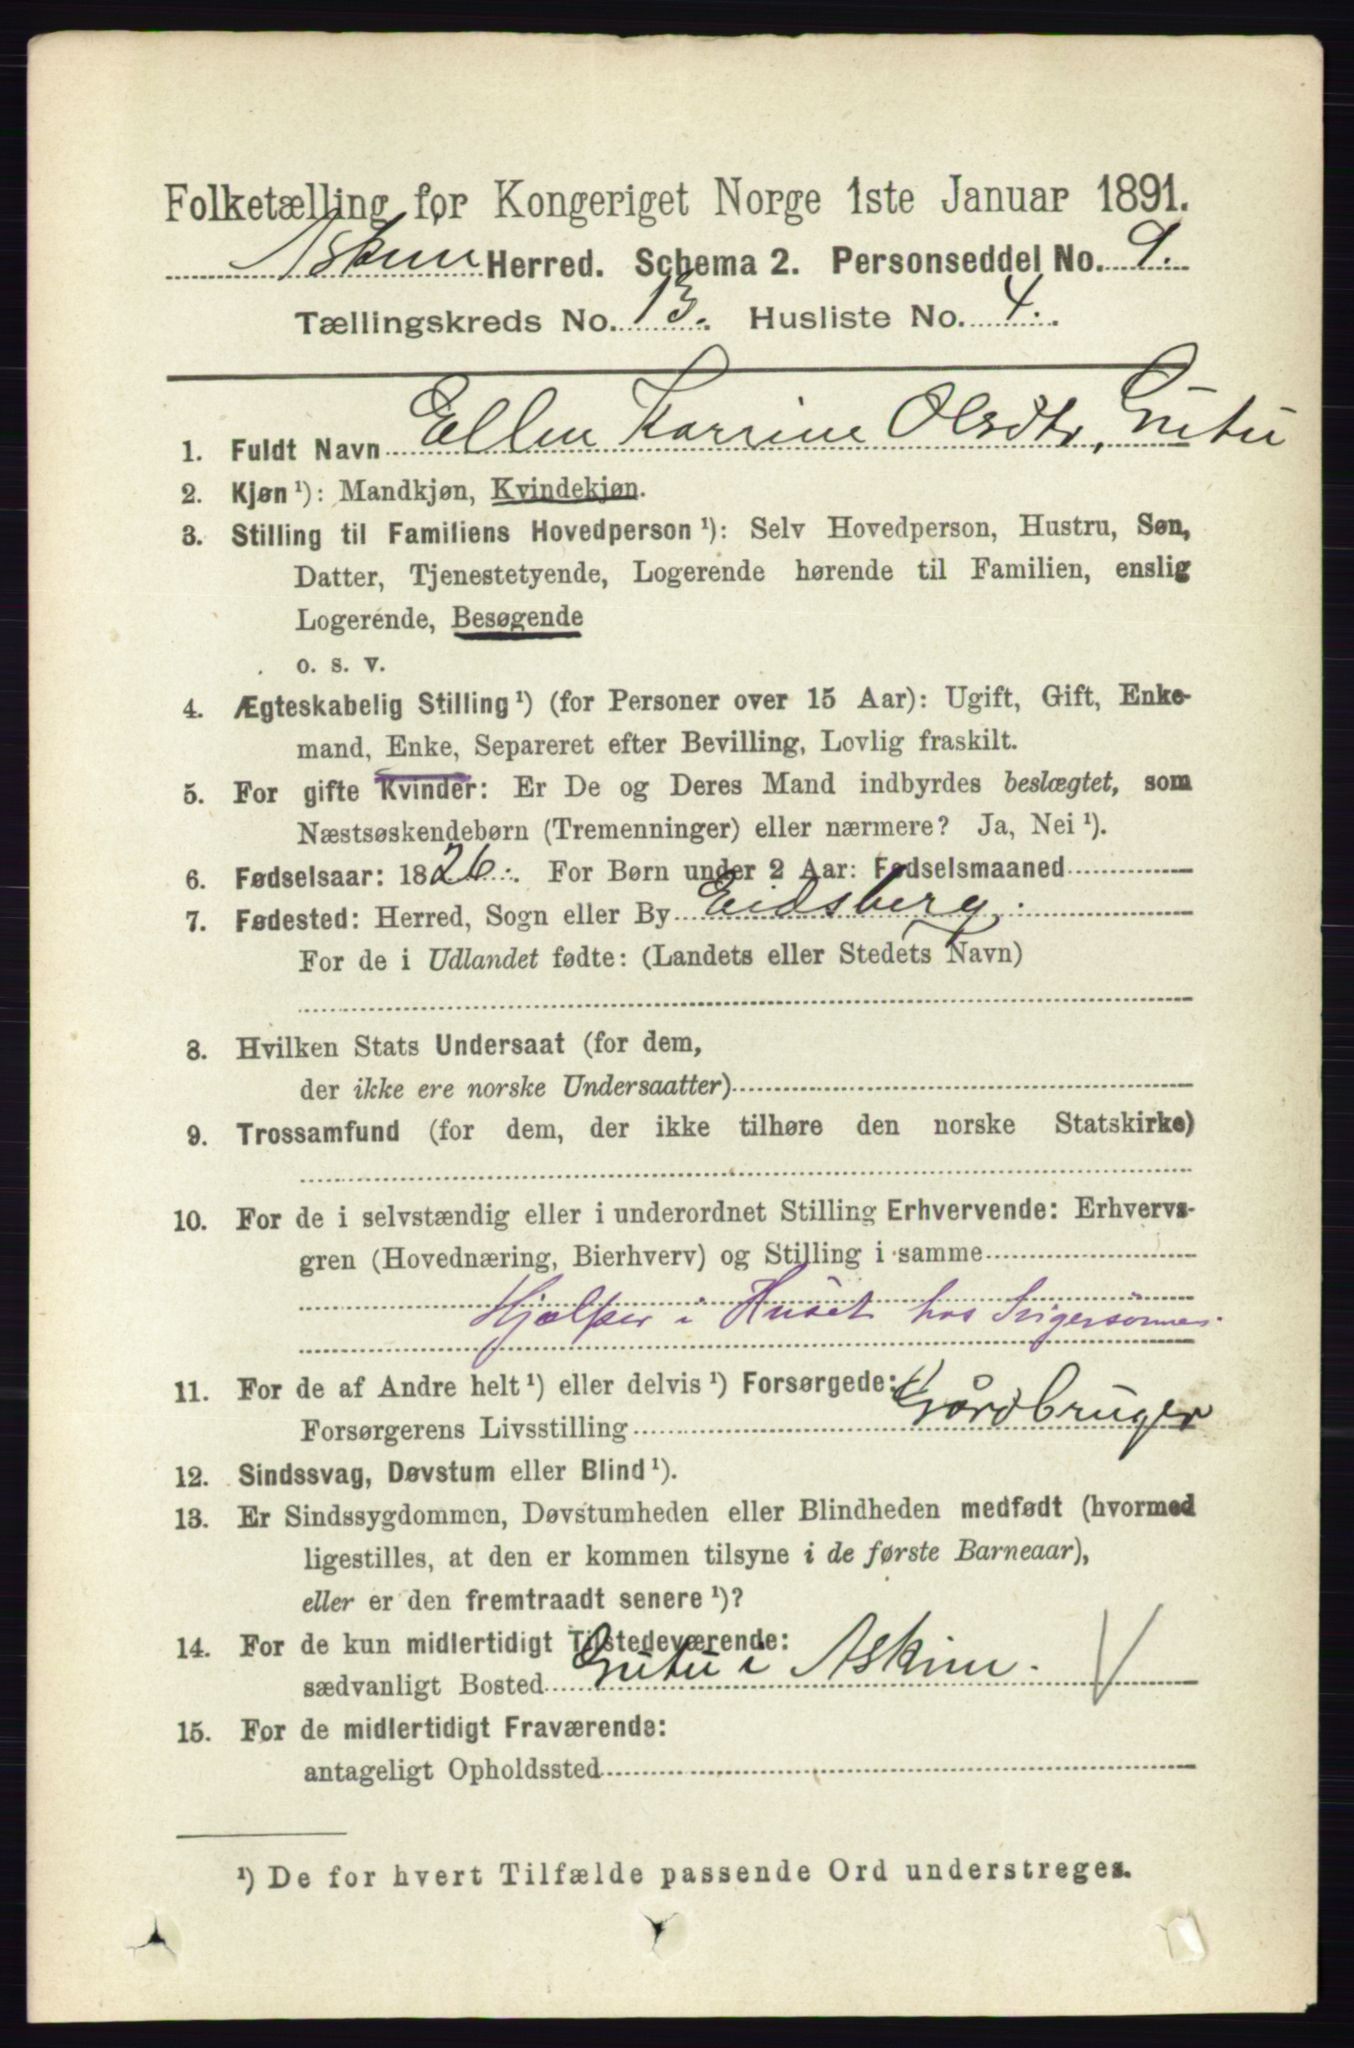 Folketælling for Kongeriget Norge 1ste Januar 1891.
Askim Herred. Schema 2. Personseddel No. 9.
Tællingskreds No. 13. Husliste No. 4.
1. Fuldt Navn Ellen Karrine Olsdtr, Grutu
2. Kjøn ¹): Mandkjøn, Kvindekjøn.
3. Stilling til Familiens Hovedperson ¹): Selv Hovedperson, Hustru, Søn,
Datter, Tjenestetyende, Logerende hørende til Familien, enslig
Logerende, Besøgende
o. s. v.
4. Ægteskabelig Stilling ¹) (for Personer over 15 Aar): Ugift, Gift, Enke-
mand, Enke, Separeret efter Bevilling, Lovlig fraskilt.
5. For gifte Kvinder: Er De og Deres Mand indbyrdes beslægtet, som
Næstsøskendebørn (Tremenninger) eller nærmere? Ja, Nei ¹).
6. Fødselsaar: 1826. For Børn under 2 Aar: Fødselsmaaned
7. Fødested: Herred, Sogn eller By Eidsberg.
For de i Udlandet fødte: (Landets eller Stedets Navn)
8. Hvilken Stats Undersaat (for dem,
der ikke ere norske Undersaatter)
9. Trossamfund (for dem, der ikke tilhøre den norske Statskirke)
10. For de i selvstændig eller i underordnet Stilling Erhvervende: Erhvervs-
gren (Hovednæring, Bierhverv) og Stilling i samme
Hjælper i Huset hos Svigersønnen.
11. For de af Andre helt ¹) eller delvis ¹) Forsørgede:
Forsørgerens Livsstilling Gårdbruger
12. Sindssvag, Døvstum eller Blind ¹).
13. Er Sindssygdommen, Døvstumheden eller Blindheden medfødt (hvormed
ligestilles, at den er kommen tilsyne i de første Barneaar),
eller er den fremtraadt senere ¹)?
14. For de kun midlertidigt Tilstedeværende:
sædvanligt Bosted Grutu i Askim.
15. For de midlertidigt Fraværende:
antageligt Opholdssted
¹) De for hvert Tilfælde passende Ord understreges.